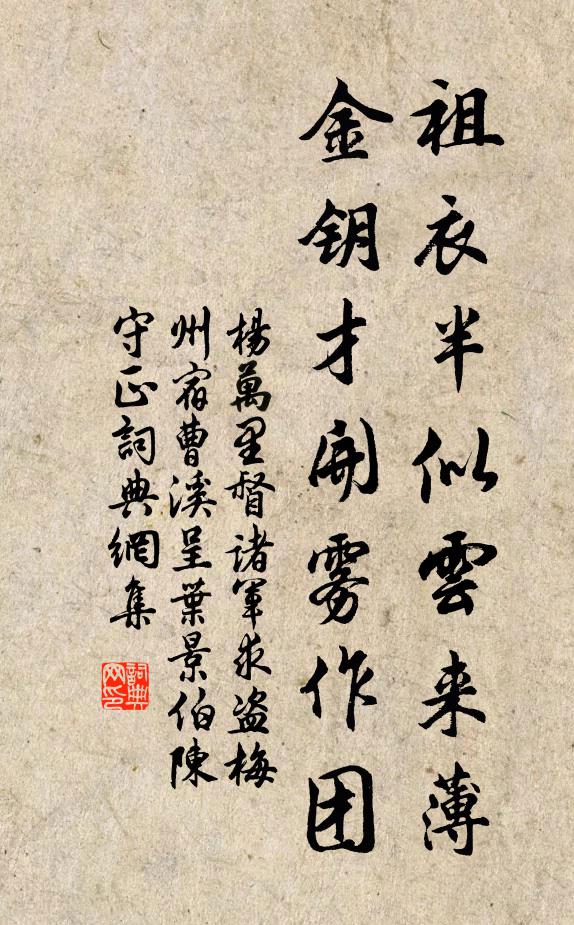 祖衣半似雲来薄
金钥才開雾作团
楊萬里督諸軍求盗梅
州宿曹溪呈葉景伯陳
守正詞典網集
詞典网印